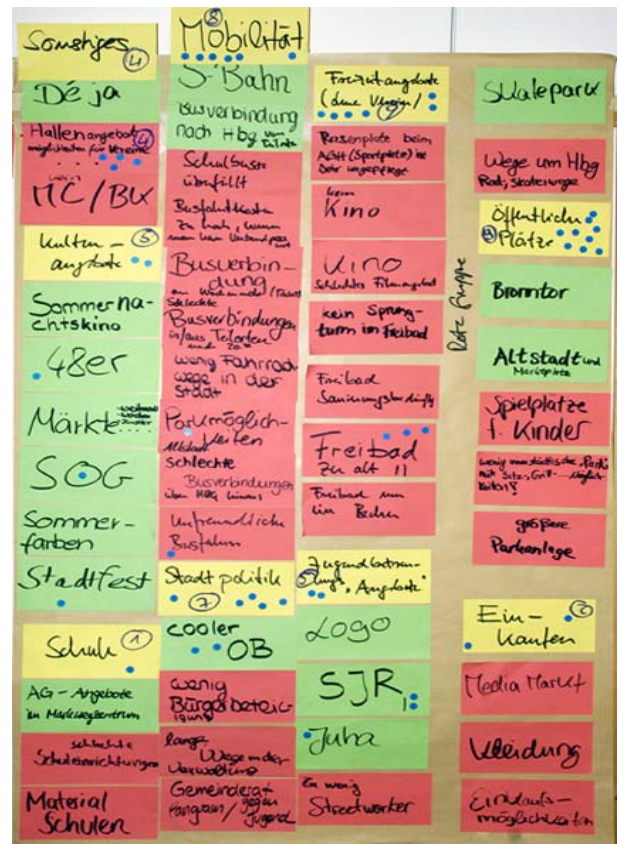 Sonstiges
4
Déja
Hallenangebot
möglichkeiten für Vereine
4
MC / BU
Kultur-
angebote
5
Sommerna-
chtskino
48er
Märkte
SOG
Sommer-
farben
Stadtfest
Schule
1
AG - Angebote
im Markwegzentrum
schlechte
Schuleinrichtungen
Material
Schulen
Mobilität
8
S-Bahn
Busverbindung
nach Hbg
Schulbusse
überfüllt
Busfahrtkosten
zu hoch, wenn
man kein
Busverbin-
dung
am Wochenende
Schlechte
Busverbindungen
in/aus Teilorten
wenig Fahrrad-
wege in der
Stadt
Parkmöglich-
keiten
Altstadt
schlechte
Busverbindungen
über Hbg hinaus
Unfreundliche
Busfahrer
Stadtpolitik
7
cooler
OB
wenig
Bürgerbeteili-
gung
lange
Wege in der
Verwaltung
Gemeinderat
langsam / gegen
Jugend
Freizeitangebote
(ohne Verein)
Rasenplatz beim
AGH (Sportplatz) ist
sehr ungepflegt
kein
Kino
Kino
schlechtes Filmangebot
kein Sprung-
turm im Freibad
Freibad
Sanierungsbedürftig
Freibad
zu alt !!
Freibad nur
ein Becken
5
Angebote
Logo
SJR
Juha
zu wenig
Streetworker
Rote Gruppe
Skatepark
Wege um Hbg
Rad, Skaterwege
Öffentliche
Plätze
Bronntor
Altstadt und
Marktplatz
Spielplätze
f. Kinder
wenig
größere
Parkanlage
Ein-
kaufen
Media Markt
Kleidung
Einkaufs-
möglichkeiten